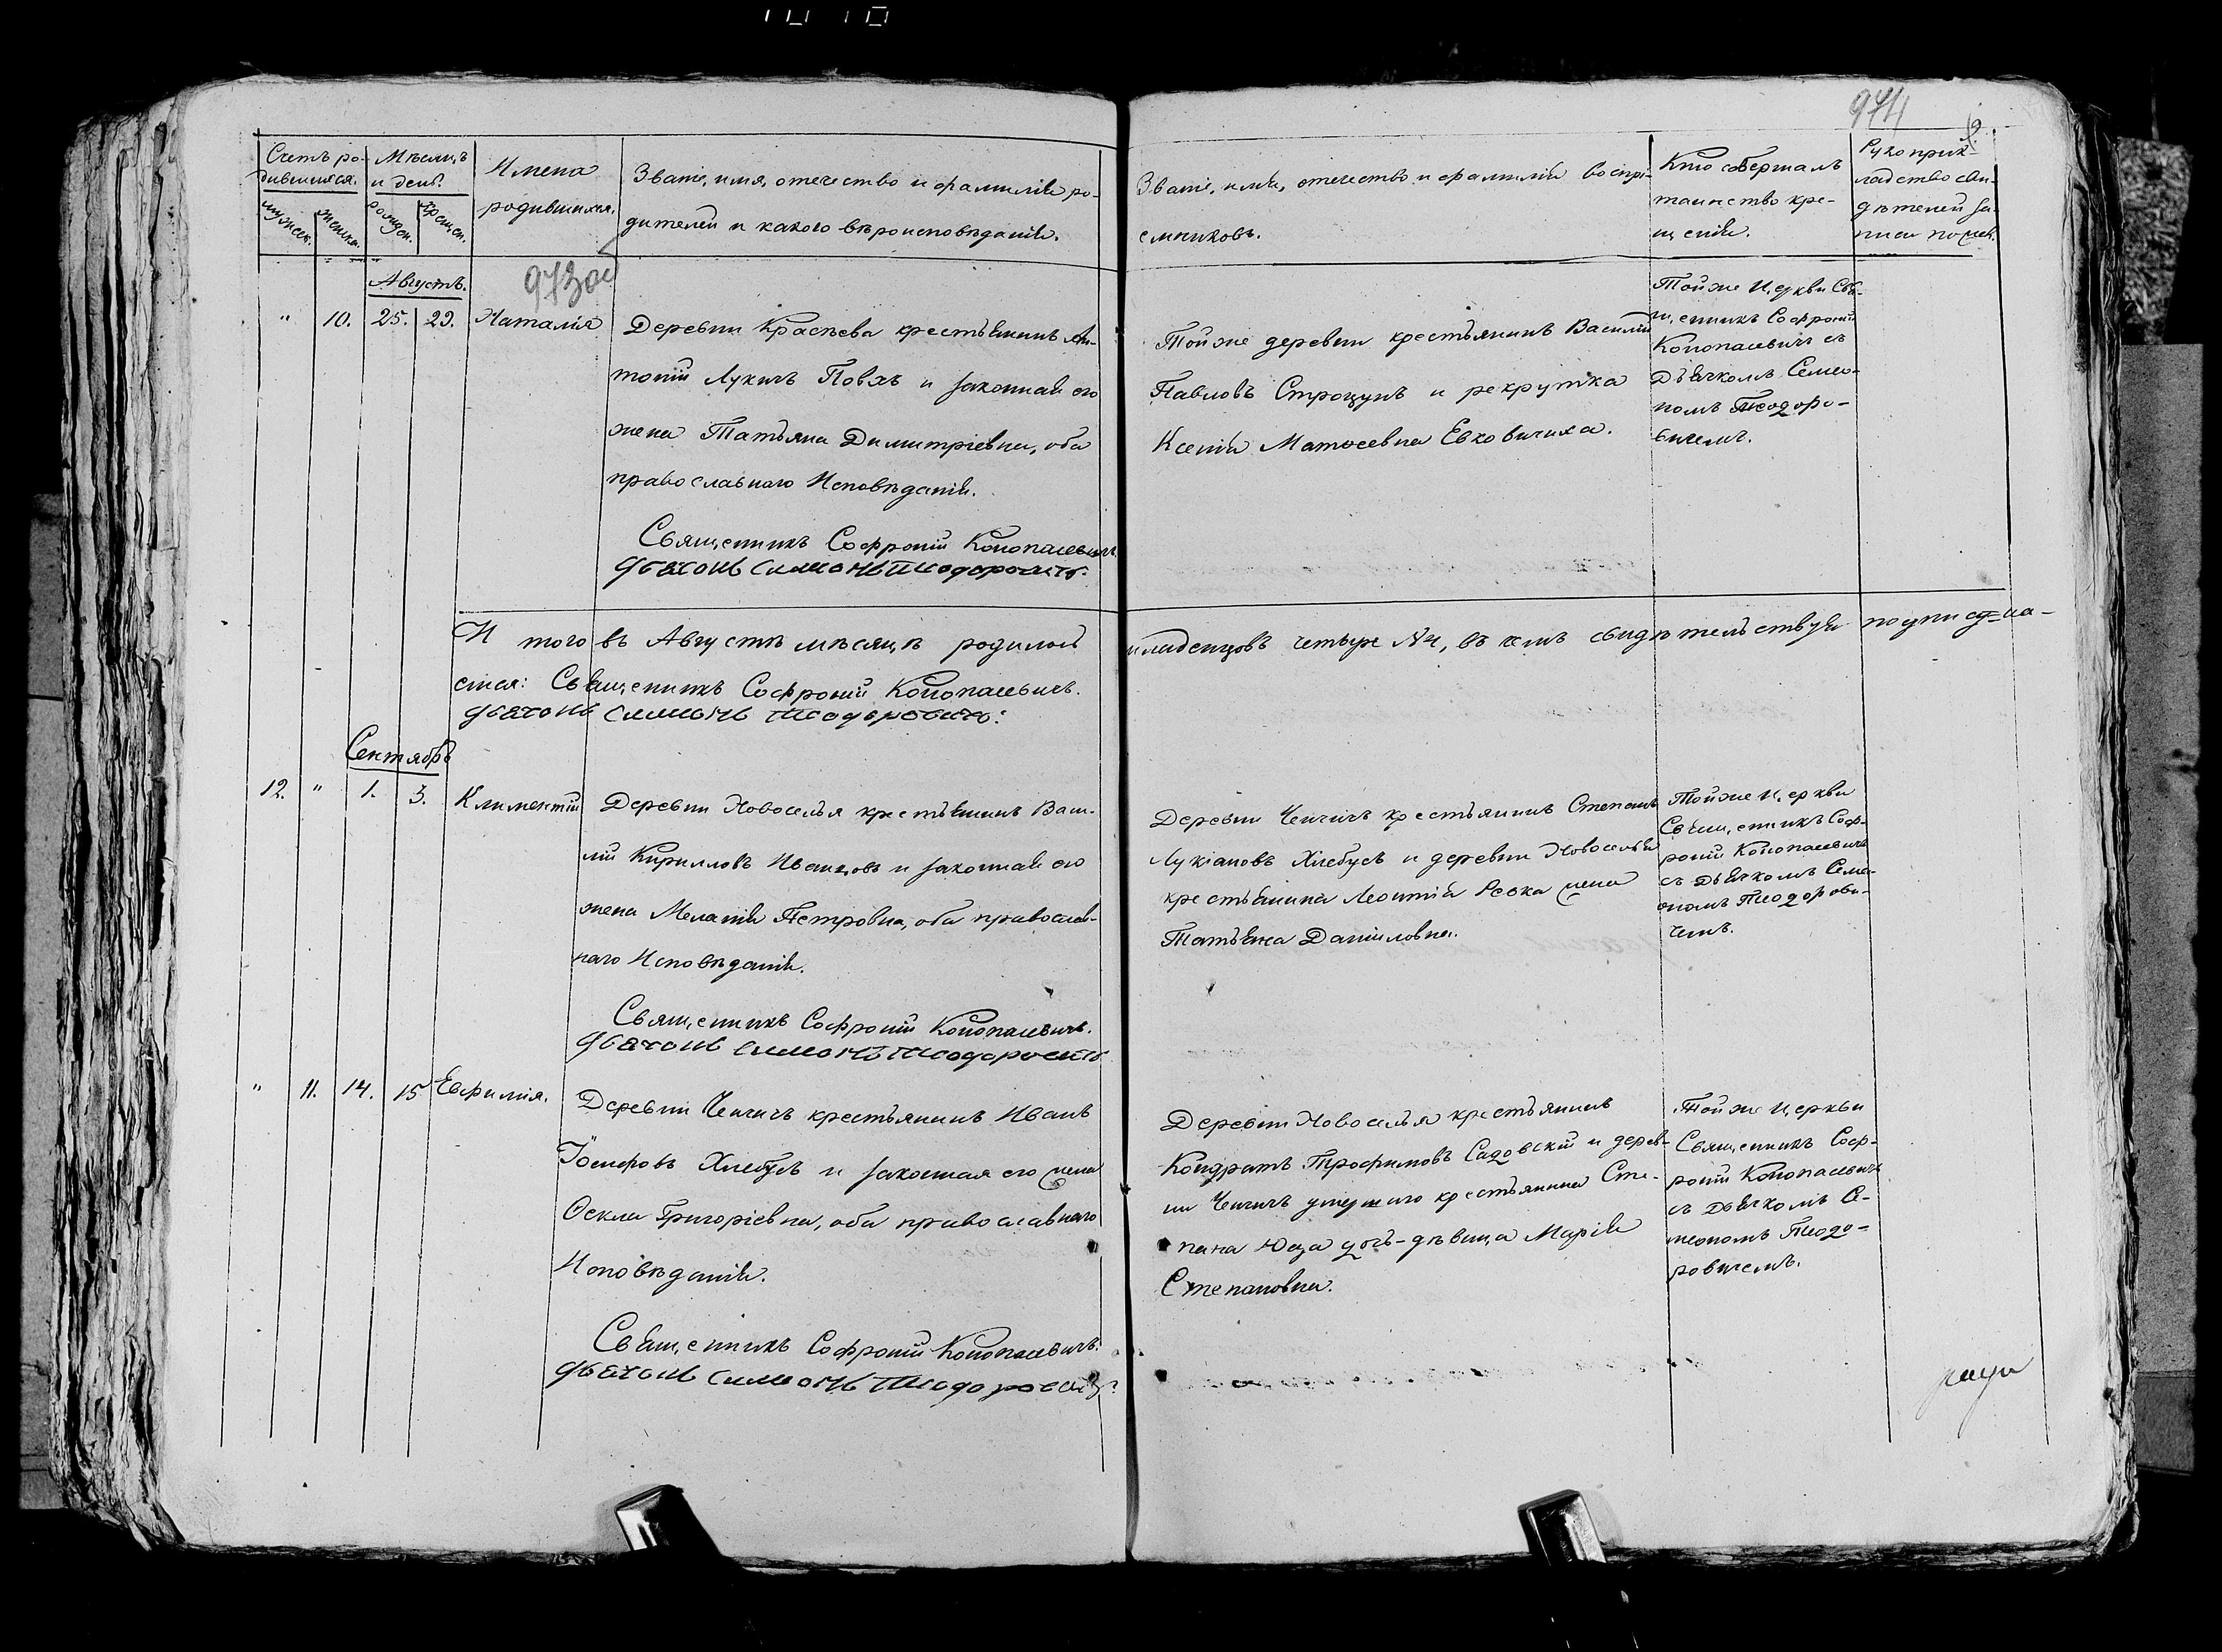 974
9.
Счетъ ро-
дившихся.
мужеск.
женск.
Мѣсяцъ
и день.
рожден.
крещен.
Имена
родившихся.
Званіе, имя, отечество и фамилія ро-
дителей и какого вѣроисповѣданія.
Званіе, имя, отечество и фамилія воспрі-
емниковъ.
Кто совершалъ
таинство кре-
щенія.
Рукоприк-
ладство сви-
дѣтелей за-
писи по жел.
Августъ.
973об
" 10. 25. 29. Наталія
Деревни Красѣева крестьянинъ Ан-
тоній Лукичъ Повхъ и законная его
жена Татьяна Димитріевна, оба
православнаго Исповѣданія.
Священникъ Софроній Конопасевичъ.
Дьячокъ Симеонъ Теодоровичъ.
Той же деревни крестьянинъ Василій
Павловъ Строцунъ и рекрутка
Ксенія Матѳеевна Евковичиха.
Той же Церкви Свя-
щенникъ Софроній
Конопасевичъ съ
Дьячкомъ Семео-
номъ Теодоро-
вичемъ.
И того въ Августѣ мѣсяцѣ родилось младенцовъ четыре №4, въ чемъ свидѣтельствуя подписуема-
емся: Священникъ Софроній Конопасевичъ.
Дьячокъ Симеонъ Теодоровичъ.
Сентябрь
12. " 1. 3. Климентій
Деревни Новоселья крестьянинъ Васи-
лій Кирилловъ Иванцовъ и законная его
жена Меланія Петровна, оба православ-
наго Исповѣданія.
Священникъ Софроній Конопасевичъ.
Дьячокъ Симеонъ Теодоровичъ.
Деревни Чечичъ крестьянинъ Степанъ
Лукіановъ Хлебусъ и деревни Новоселья
крестьянина Леонтія Ревка жена
Татьяна Даніиловна.
Той же Церкви
Священникъ Соф-
роній Конопасевичъ
съ Дьячкомъ Семе-
ономъ Теодорови-
чемъ.
" 11. 14. 15 Евфимія.
Деревни Чечичъ крестьянинъ Иванъ
Іосифовъ Хлебусъ и законная его жена
Ѳекла Григоріевна, оба православнаго
Исповѣданія.
Священникъ Софроній Конопасевичъ.
Дьячокъ Симеонъ Теодоровичъ.
Деревни Новоселья крестьянинъ
Кондратъ Трофимовъ Садовскій и дерев-
ни Чечичъ умершаго крестьянина Сте-
пана Юца дочь-дѣвица Марія
Степановна.
Той же Церкви
Священникъ Соф-
роній Конопасевичъ
съ Дьячкомъ Се-
меономъ Теодо-
ровичемъ.